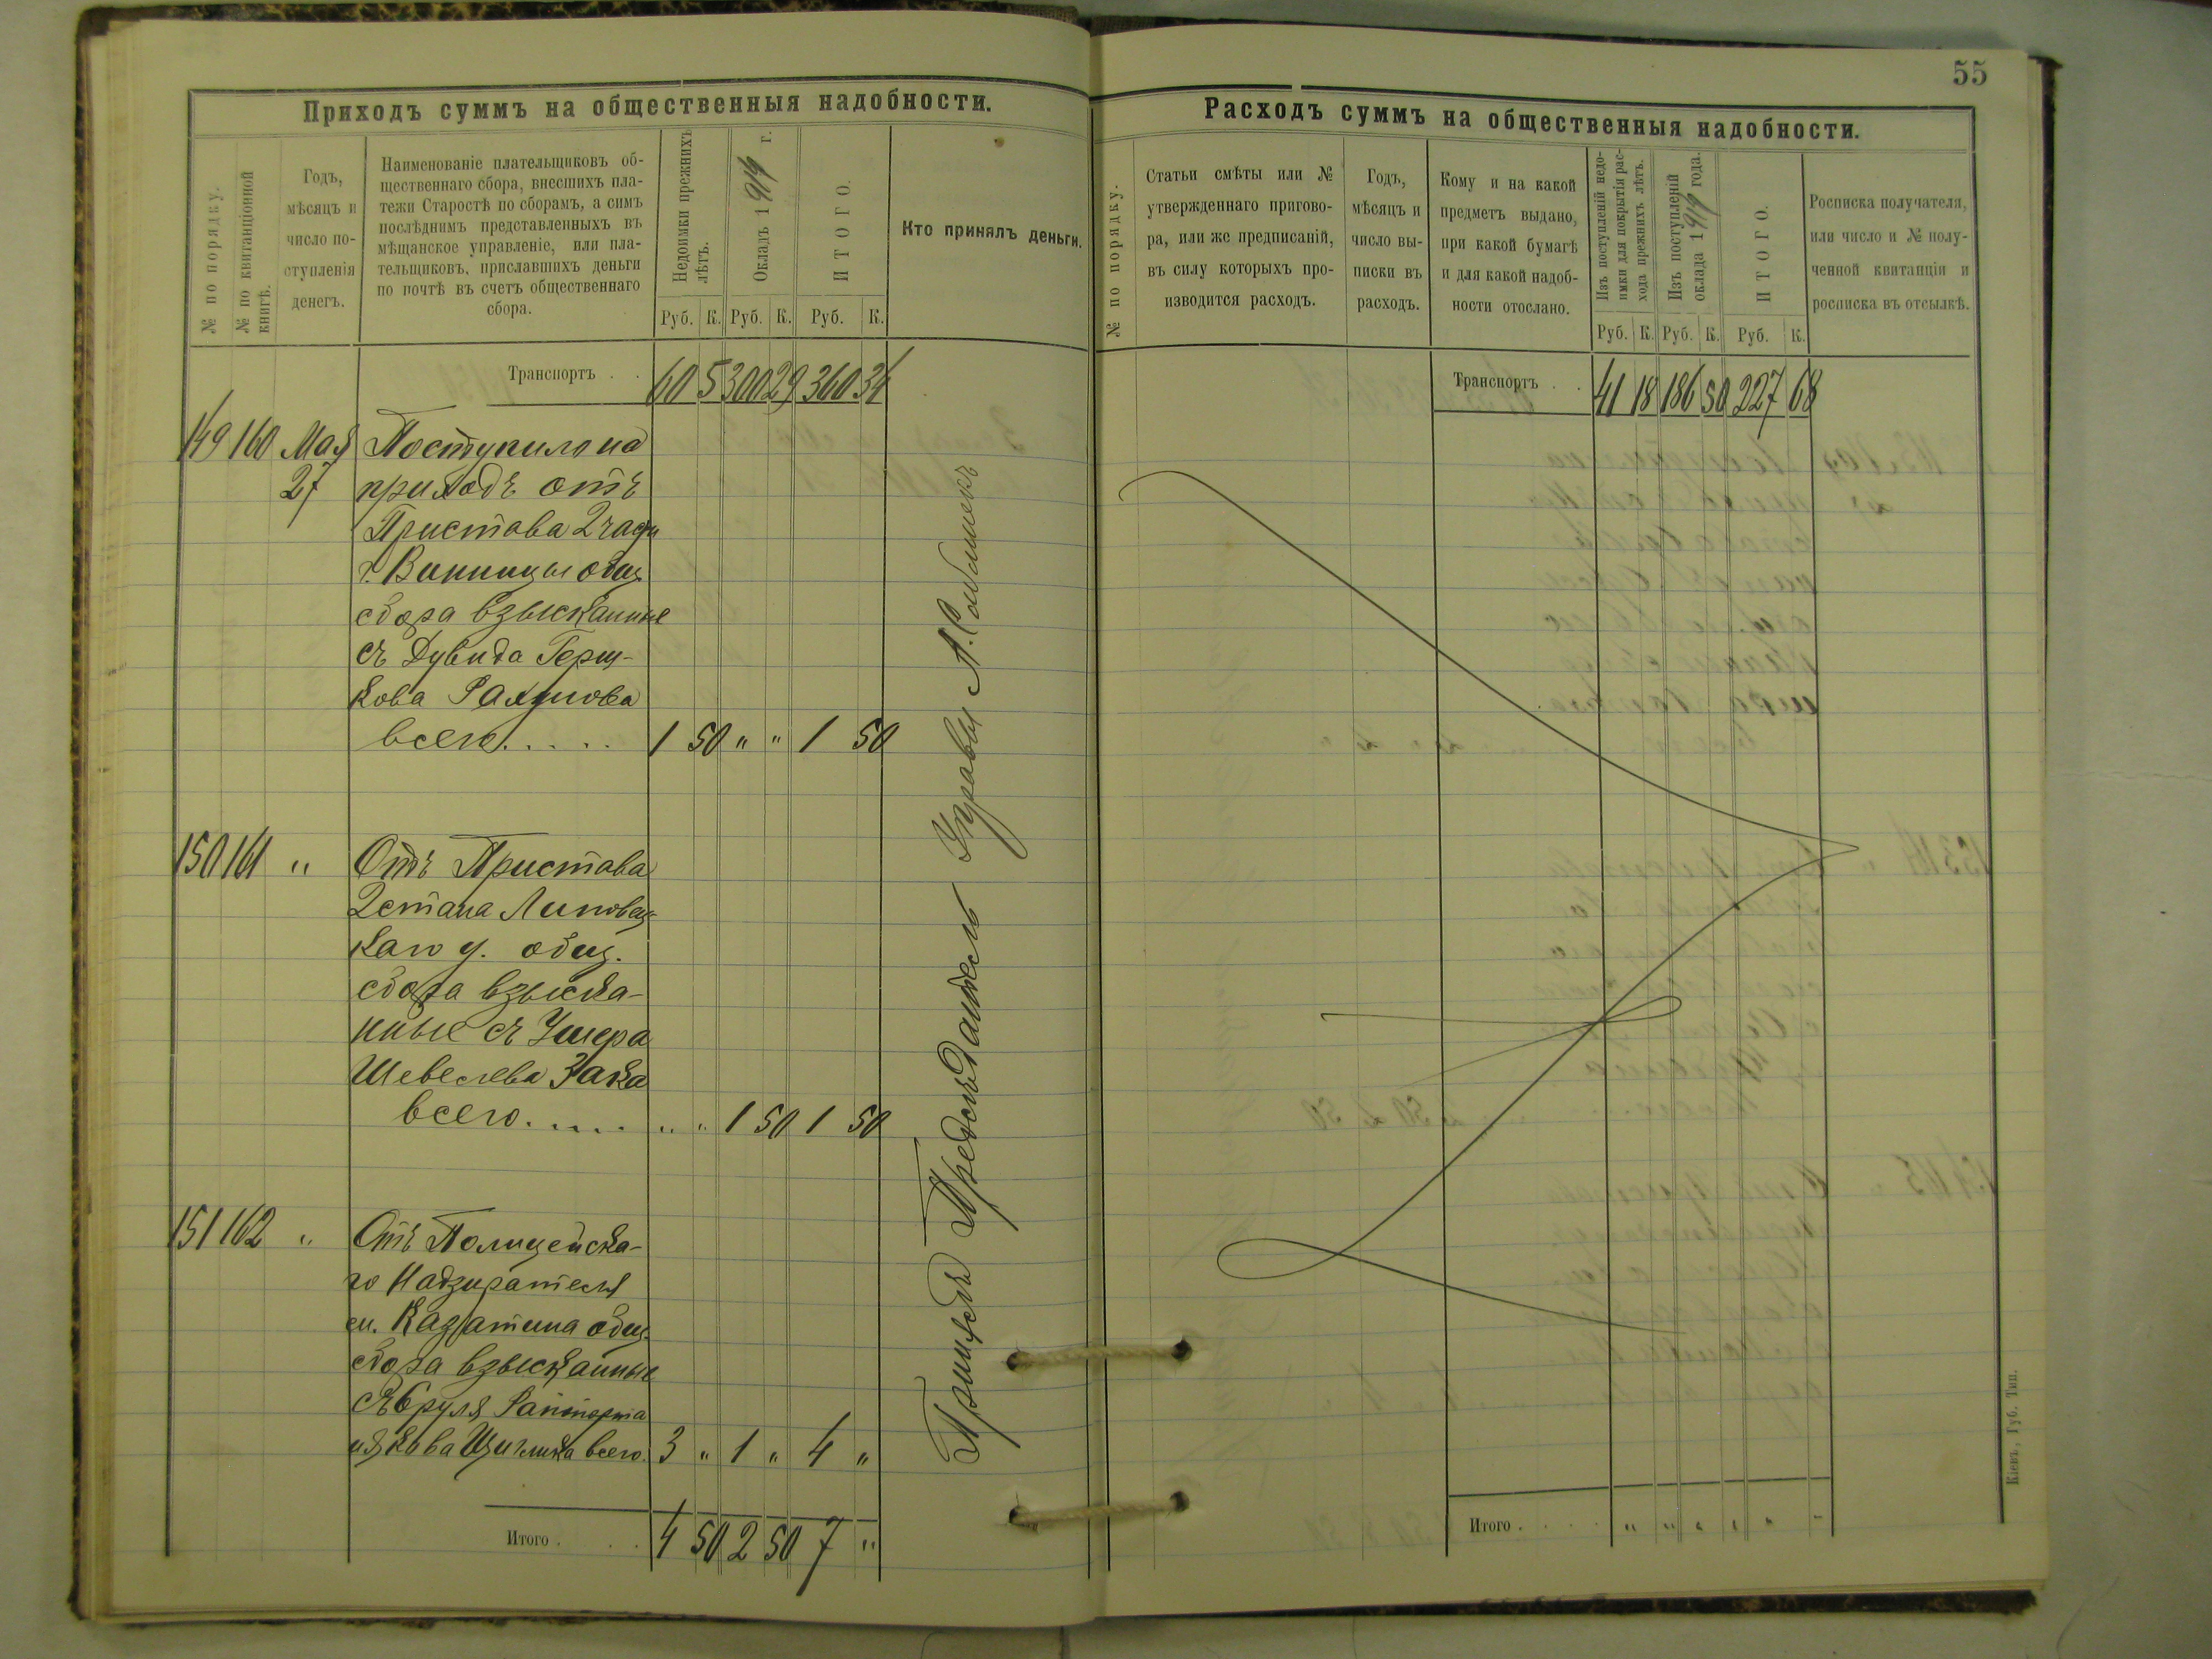 Приходъ суммъ на общественныя надобности.
№ по порядку.
№ по квитанціонной
книгѣ.
Годъ,
мѣсяцъ и
число по-
ступленія
денегъ.
Наименованіе плательщиковъ об-
щественнаго сбора, внесшихъ пла-
тежи Старостѣ по сборамъ, а симъ
послѣднимъ представленныхъ въ
мѣщанское управленіе, или пла-
тельщиковъ, приславшихъ деньги
по почтѣ въ счетъ общественнаго
сбора.
Недоимки прежнихъ
лѣтъ.
Окладъ 1914 г.
ИТОГО.
Руб. К. Руб. К. Руб. К.
Кто принялъ деньги.
Транспортъ . . 60 5 300 29 360 34
149 160 Мая Поступило на
27 приходъ отъ
Пристава 2 части
г. Винницы общ.
сбора взысканные
съ Дувида Герш-
кова
всего . . . . . 1 50 " " 1 50
150 161 " Отъ Пристава
2 стана Липовец-
каго у. общ.
сбора взыска-
нные съ Ушера
Шевелева Зака
всего . . . . . " " 1 50 1 50
151 162 " Отъ Полицейска-
го Надзирателя
ст. Казатина общ.
сбора взысканные
съ Сруля Раппорта
всего. 3 " 1 " 4 "
Итого . . . 4 50 2 50 7 "
Управы А.
55
Расходъ суммъ на общественныя надобности.
№ по порядку.
Статьи смѣты или №
утвержденнаго пригово-
ра, или же предписаній,
въ силу которыхъ про-
изводится расходъ.
Годъ,
мѣсяцъ и
число вы-
писки въ
расходъ.
Кому и на какой
предметъ выдано,
при какой бумагѣ
и для какой надоб-
ности отослано.
Изъ поступленій недо-
имки для покрытія рас-
хода прежнихъ лѣтъ.
Изъ поступленій
оклада 1914 года.
ИТОГО.
Руб. К. Руб. К. Руб. К.
Росписка получателя,
или число и № полу-
ченной квитанціи и
росписка въ отсылкѣ.
Транспортъ . . 41 18 186 50 227 68
Итого . . . . " " " " " -
Кіевъ, Губ. Тип.